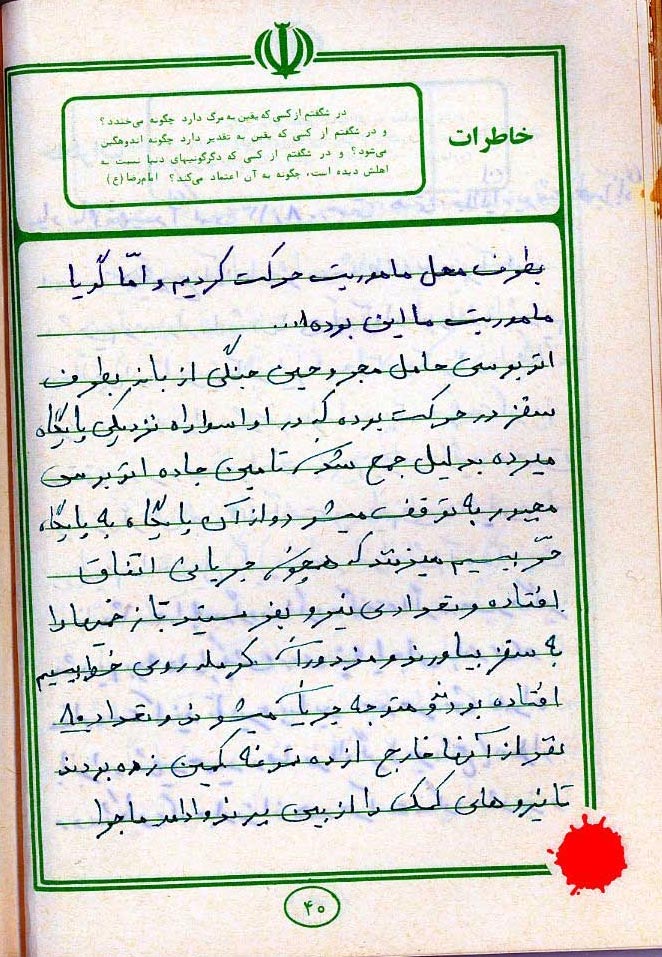 خاطرات
در شگفتم از کسی که یقین به مرگ دارد چگونه می‌خندد؟
و در شگفتم از کسی که یقین به تقدیر دارد چگونه اندوهگین
می‌شود؟ و در شگفتم از کسی که دگرگونیهای دنیا نسبت به
اهلش دیده است، چگونه به آن اعتماد می‌کند؟ امام رضا (ع)
بطرف محل ماموریت حرکت کردیم و امّا گویا
ماموریت ما این بوده...
اتوبوسی حامل مجروحین جنگی از بانه بطرف
سقز در حرکت بوده که در اواسط راه نزدیکی پایگاه
میرده بدلیل جمع شدن تامین جاده اتوبوس
مجبور به توقف میشود و از آن پایگاه به پایگاه
حرّ بیسیم میزنند که همچون جریانی اتفاق
افتاده و تعدادی نیرو بفرستید تا زخمیها را
به سقز بیاورند و مزدوران کومله روی خط بیسیم
افتاده بودند و متوجه جریان میشوند و تعداد ۸۰
نفر از آنها خارج از ده کمین زده بودند
تا نیروهای کمک را از بین ببرند و ادامه ماجرا
۴۰